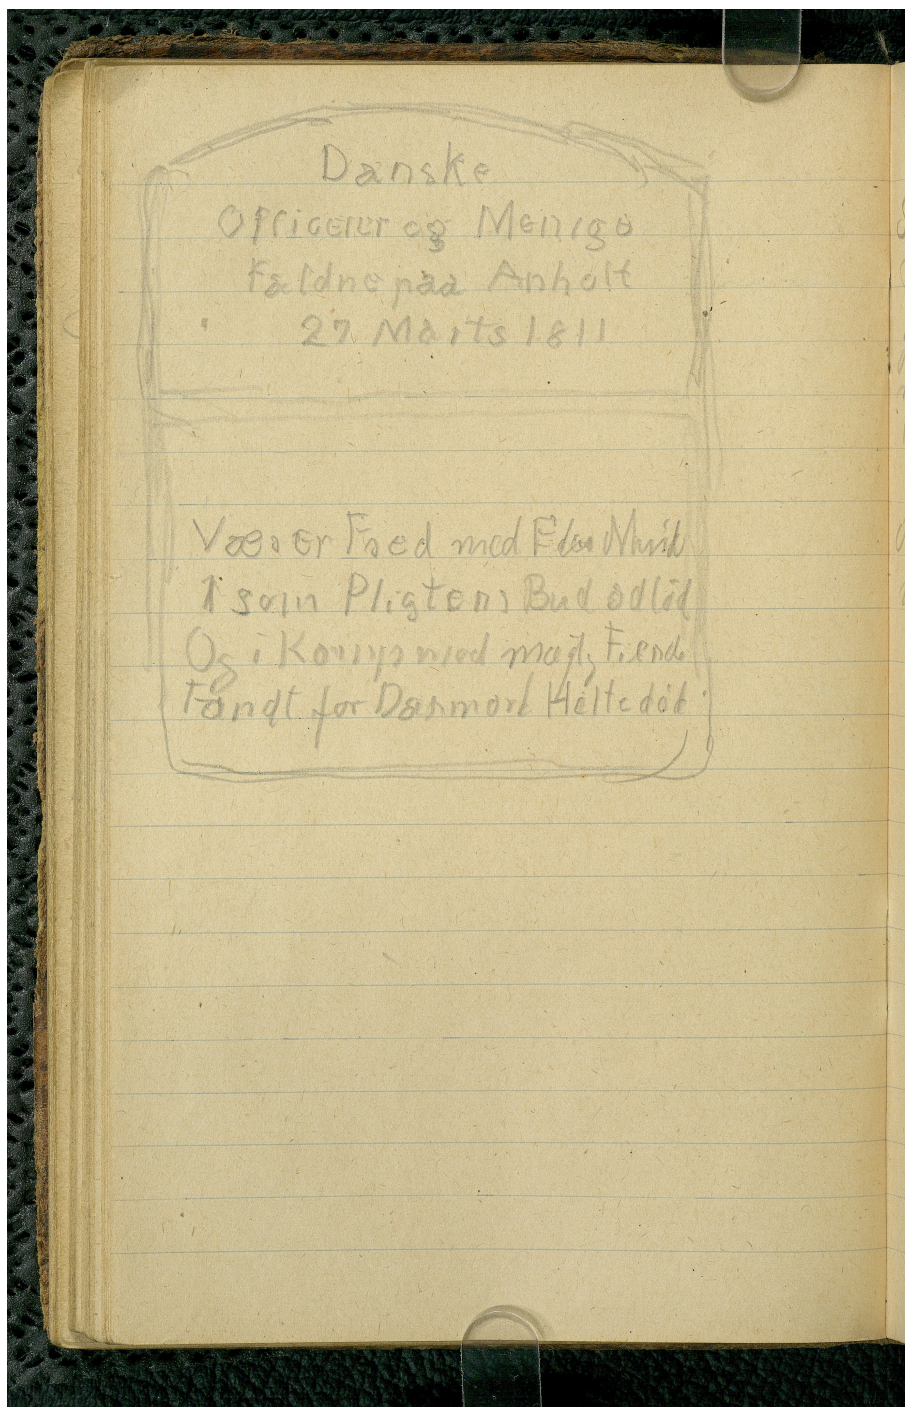 Danske
Officerer og Menige
Faldne paa Anholt
27 Marts 1811
Være Fred med Eders
I som Pligtens Bud adlød
Og i Kamp med mægtg Fiende
Fandt for Danmark Heltedöd